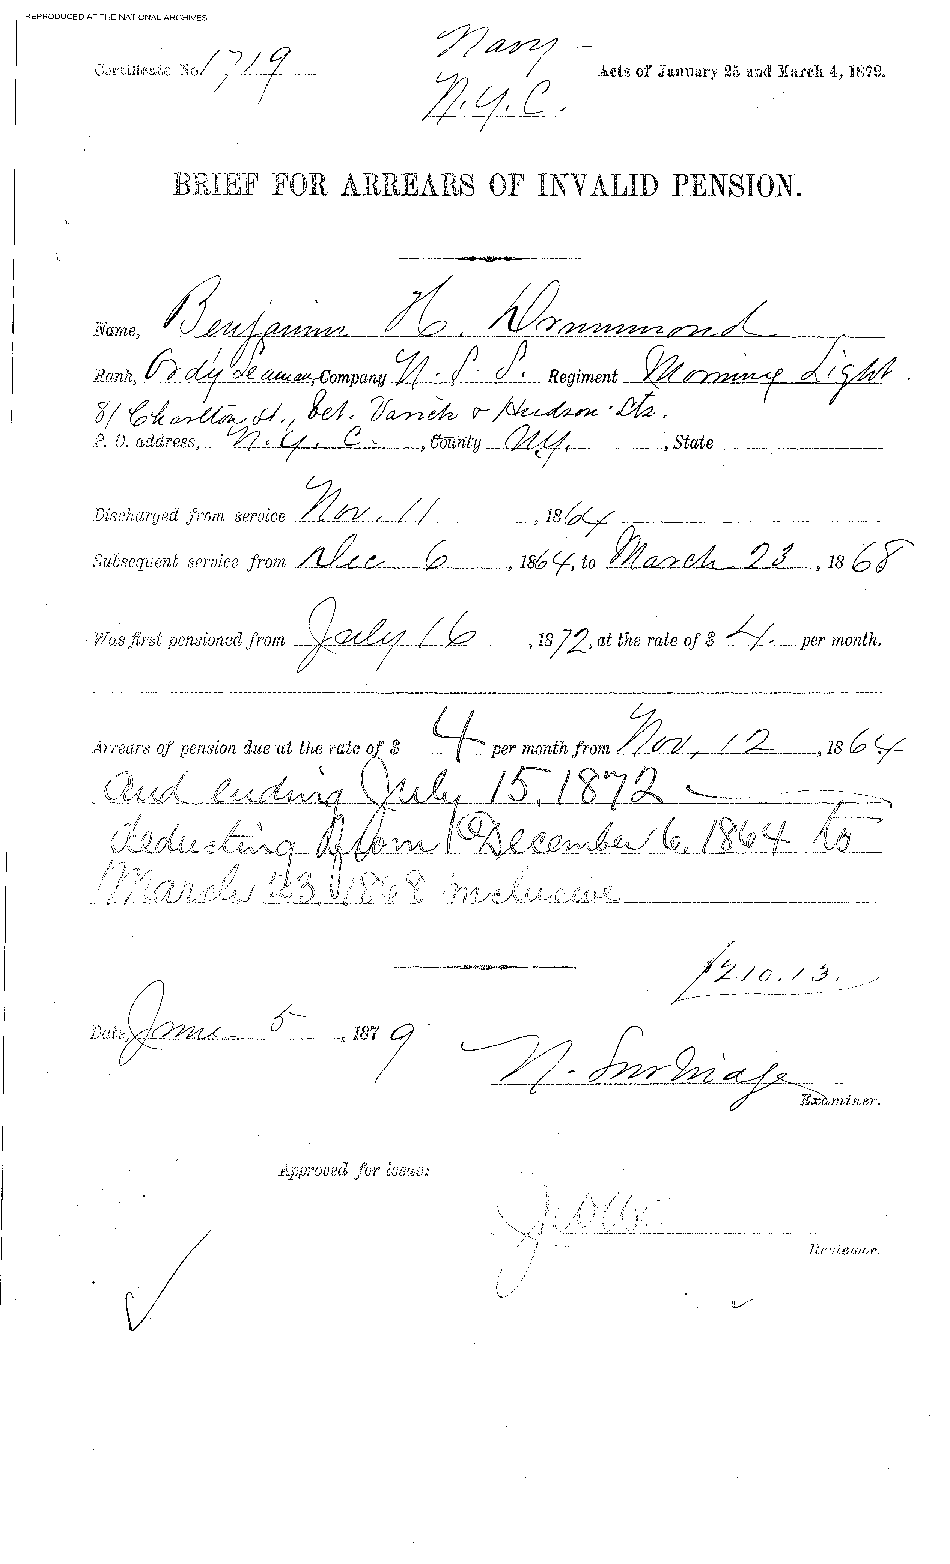 REPRODUCED AT THE NATIONAL ARCHIVES
Navy -
Certificate No. 1719
Acts of January 25 and March 4, 1879.
N.Y.C.
BRIEF FOR ARREARS OF INVALID PENSION.
Name, Benjamin H. Drummond
Rank, Ordy Seaman, Company U.S.S. Regiment Morning Light.
81 Charlton St., bet. Varick & Hudson Sts.
P. O. address, N.Y.C., County N.Y., State
Discharged from service Nov. 11, 1864
Subsequent service from Dec 6, 1864, to March 23, 1868
Was first pensioned from July 16, 1872, at the rate of $ 4. per month.
Arrears of pension due at the rate of $ 4 per month from Nov. 12, 1864
and ending July 15, 1872
deducting from December 6, 1864 to
March 23, 1868 inclusive
$210.13.
Date, June 5, 1879
N.
Examiner.
Approved for issue:
Reviewer.